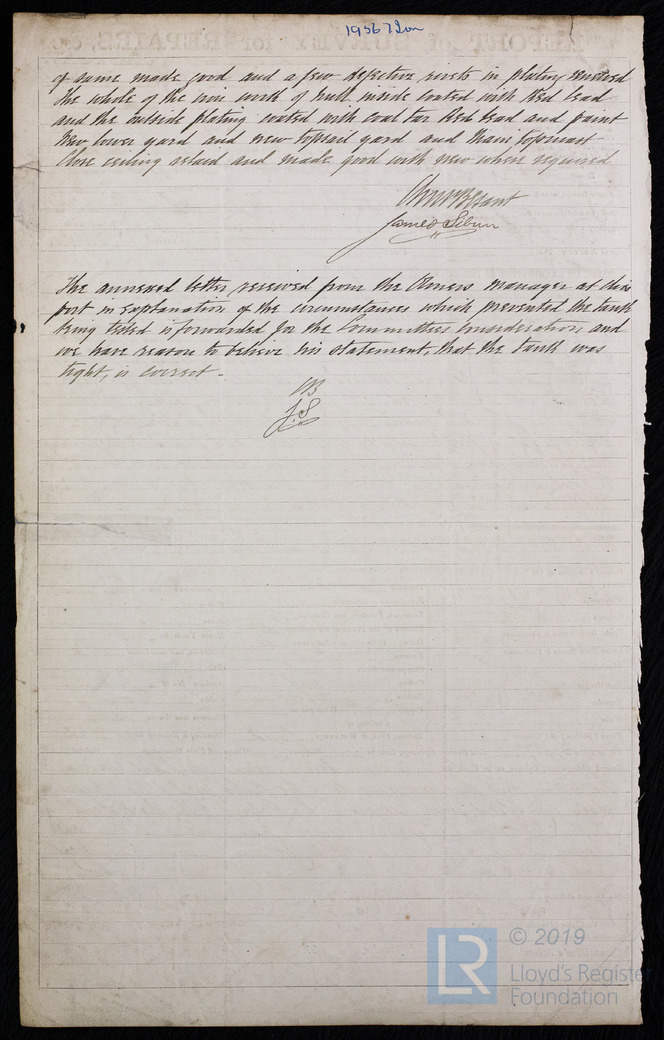 19567 Iron
of same made good and a few defective rivets in plating renewed
The whole of the iron work of hull inside coated with Red lead
and the outside plating coated with coal tar Red lead and paint
New lower yard and new topsail yard and main topmast
Close ceiling relaid and made good with new where required
James Sibun
The annexed letter received from the Owners manager at this
port in explanation of the circumstances which prevented the tank
being tested is forwarded for the Committees consideration and
we have reason to believe his statement, that the tank was
tight, is correct.
J.S
© 2019
LR
Lloyd's Register
Foundation